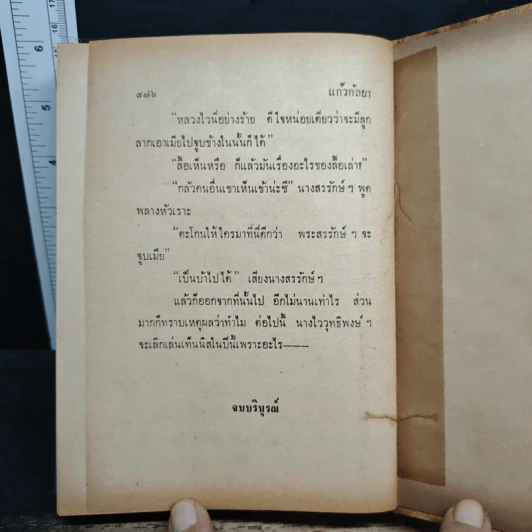 ๔๗๖ แก้วกัลยา
“หลวงไวนี่อย่างร้าย ดีใจหน่อยเดียวว่าจะมีลูก
ลากเอาเมียไปจูบข้างในนั้นก็ได้”
“ลื้อเห็นหรือ ก็แล้วมันเรื่องอะไรของลื้อเล่า”
“กลัวคนอื่นเขาเห็นเข้าน่ะซี” นางสรรักษ์ ฯ พูด
พลางหัวเราะ
“ตะโกนให้ใครมาที่นี่ดีกว่า พระสรรักษ์ ฯ จะ
จูบเมีย”
“เป็นบ้าไปได้” เสียงนางสรรักษ์ ฯ
แล้วก็ออกจากที่นั้นไป อีกไม่นานเท่าไร ส่วน
มากก็ทราบเหตุผลว่าทำไม ต่อไปนี้ นางไววุทธิพงษ์ ฯ
จะเลิกเล่นเท็นนิสในปีนี้เพราะอะไร———
จบบริบูรณ์
6
5